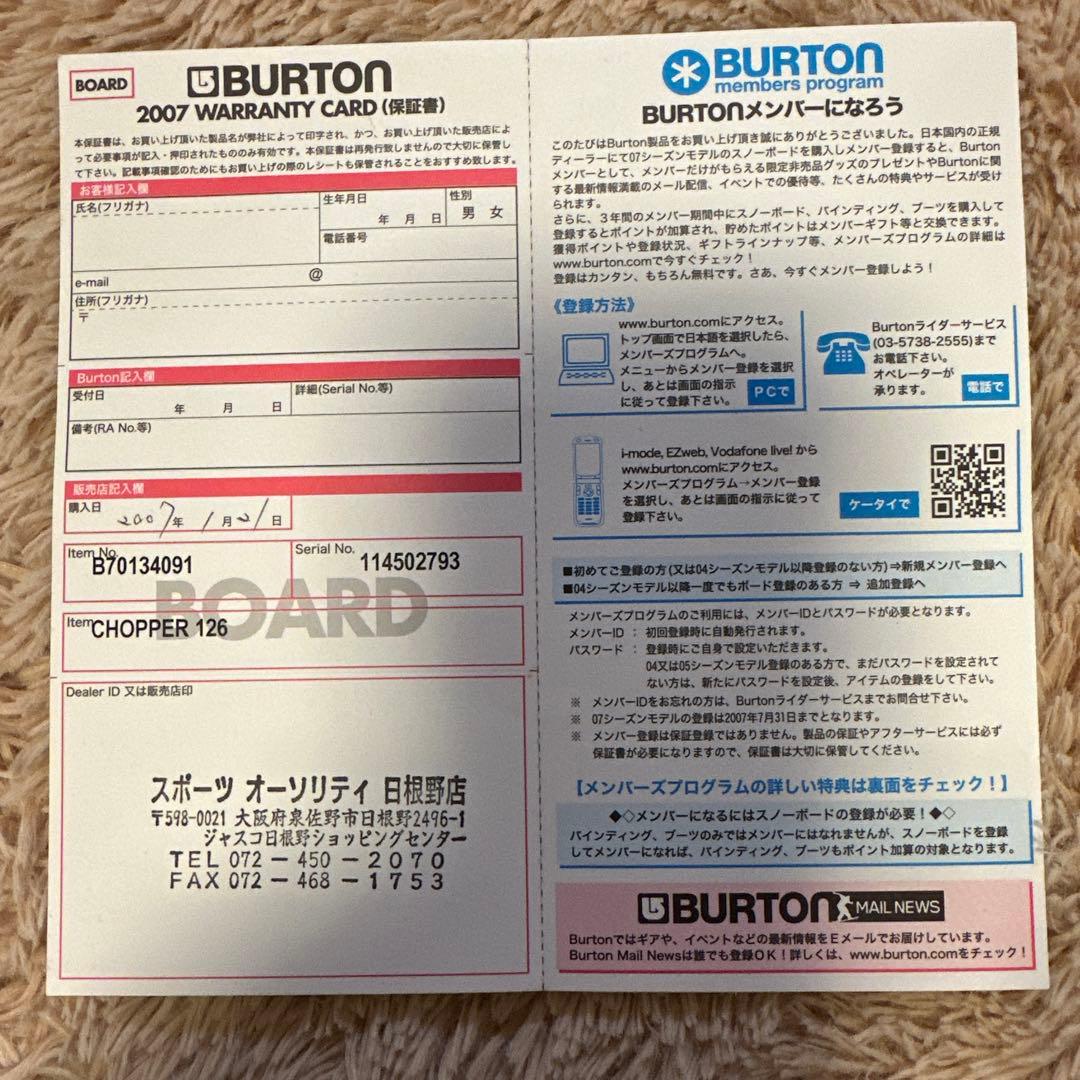 BOARD
BURTON
2007 WARRANTY CARD (保証書)
本保証書は、お買い上げ頂いた製品名が弊社によって印字され、かつ、お買い上げ頂いた販売店によ
って必要事項が記入・押印されたもののみ有効です。本保証書は再発行致しませんので大切に保管し
て下さい。記載事項確認のためにもお買い上げの際のレシートも保管されることをおすすめ致します。
お客様記入欄
氏名(フリガナ)
生年月日
年 月 日
性別
男 女
電話番号
e-mail @
住所(フリガナ)
〒
Burton記入欄
受付日
年 月 日
詳細(Serial No.等)
備考(RA No.等)
販売店記入欄
購入日
2007年 1月21日
Item No.
B70134091
Serial No.
114502793
BOARD
Item
CHOPPER 126
Dealer ID 又は販売店印
スポーツ オーソリティ 日根野店
〒598-0021 大阪府泉佐野市日根野2496-1
ジャスコ日根野ショッピングセンター
TEL 072-450-2070
FAX 072-468-1753
BURTON
members program
BURTONメンバーになろう
このたびはBurton製品をお買い上げ頂き誠にありがとうございました。日本国内の正規
ディーラーにて07シーズンモデルのスノーボードを購入しメンバー登録すると、Burton
メンバーとして、メンバーだけがもらえる限定非売品グッズのプレゼントやBurtonに関
する最新情報満載のメール配信、イベントでの優待等、たくさんの特典やサービスが受け
られます。
さらに、3年間のメンバー期間中にスノーボード、バインディング、ブーツを購入して
登録するとポイントが加算され、貯めたポイントはメンバーギフト等と交換できます。
獲得ポイントや登録状況、ギフトラインナップ等、メンバーズプログラムの詳細は
www.burton.comで今すぐチェック！
登録はカンタン、もちろん無料です。さあ、今すぐメンバー登録しよう！
《登録方法》
www.burton.comにアクセス。
トップ画面で日本語を選択したら、
メンバーズプログラムへ。
メニューからメンバー登録を選択
し、あとは画面の指示
に従って登録下さい。
PCで
Burtonライダーサービス
(03-5738-2555)まで
お電話下さい。
オペレーターが
承ります。
電話で
i-mode, EZweb, Vodafone live! から
www.burton.comにアクセス。
メンバーズプログラム→メンバー登録
を選択し、あとは画面の指示に従って
登録下さい。
ケータイで
■初めてご登録の方(又は04シーズンモデル以降登録のない方)⇒新規メンバー登録へ
■04シーズンモデル以降一度でもボード登録のある方 ⇒ 追加登録へ
メンバーズプログラムのご利用には、メンバーIDとパスワードが必要となります。
メンバーID ： 初回登録時に自動発行されます。
パスワード ： 登録時にご自身で設定いただきます。
04又は05シーズンモデル登録のある方で、まだパスワードを設定されて
ない方は、新たにパスワードを設定後、アイテムの登録をして下さい。
※ メンバーIDをお忘れの方は、Burtonライダーサービスまでお問合せ下さい。
※ 07シーズンモデルの登録は2007年7月31日までとなります。
※ メンバー登録は保証登録ではありません。製品の保証やアフターサービスには必ず
保証書が必要になりますので、保証書は大切に保管してください。
【メンバーズプログラムの詳しい特典は裏面をチェック！】
◆◇メンバーになるにはスノーボードの登録が必要！◆◇
バインディング、ブーツのみではメンバーにはなれませんが、スノーボードを登録
してメンバーになれば、バインディング、ブーツもポイント加算の対象となります。
BURTON MAIL NEWS
Burtonではギアや、イベントなどの最新情報をEメールでお届けしています。
Burton Mail Newsは誰でも登録OK！詳しくは、www.burton.comをチェック！